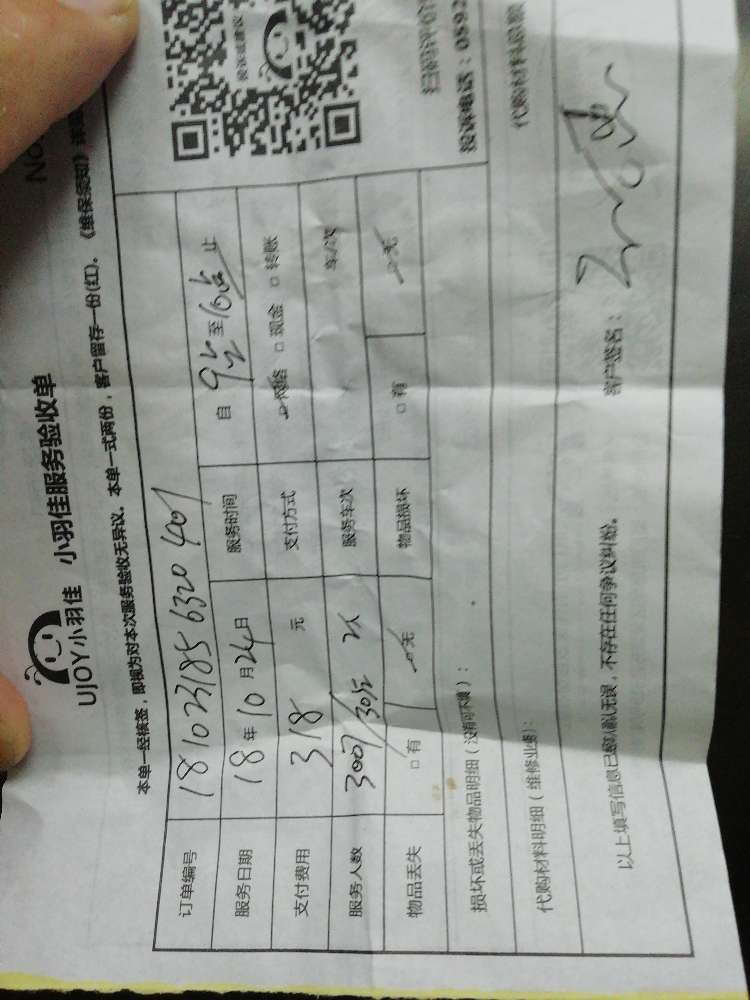 No
UJOY小羽佳 小羽佳服务验收单
本单一经核签，即视为对本次服务验收无异议。本单一式两份，客户留存一份(红)。《维保须知》详
投诉或建议
扫码评价
投诉电话：0592
订单编号 1810231856320401
服务日期 18年10月24日 服务时间 自 至 止
支付费用 318 元 支付方式 网络 □现金 □转账
服务人数 3007/3012 2人 服务车次 车/次
物品丢失 □有 无 物品损坏 □有 无
损坏或丢失物品明细（没有可不填）：
代购材料明细（维修业务）： 代购材料总额
以上填写信息已经本人确认无误，不存在任何争议纠纷。 客户签名：